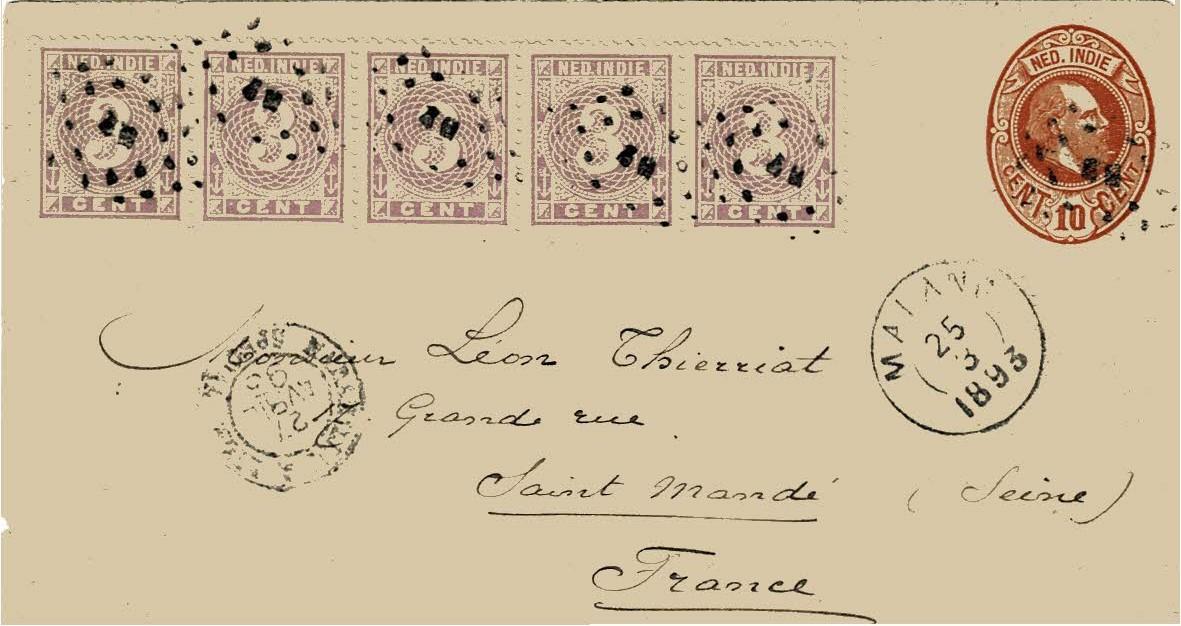 NED. INDIE NED. INDIE NED. INDIE NED. INDIE NED. INDIE
3 3 3 3 3
CENT CENT CENT CENT CENT
NED. INDIE
CENT 10 CENT
MALANG
25
3
1893
Monsieur Léon Thierriat
Grande rue
Saint Mandé (Seine)
France